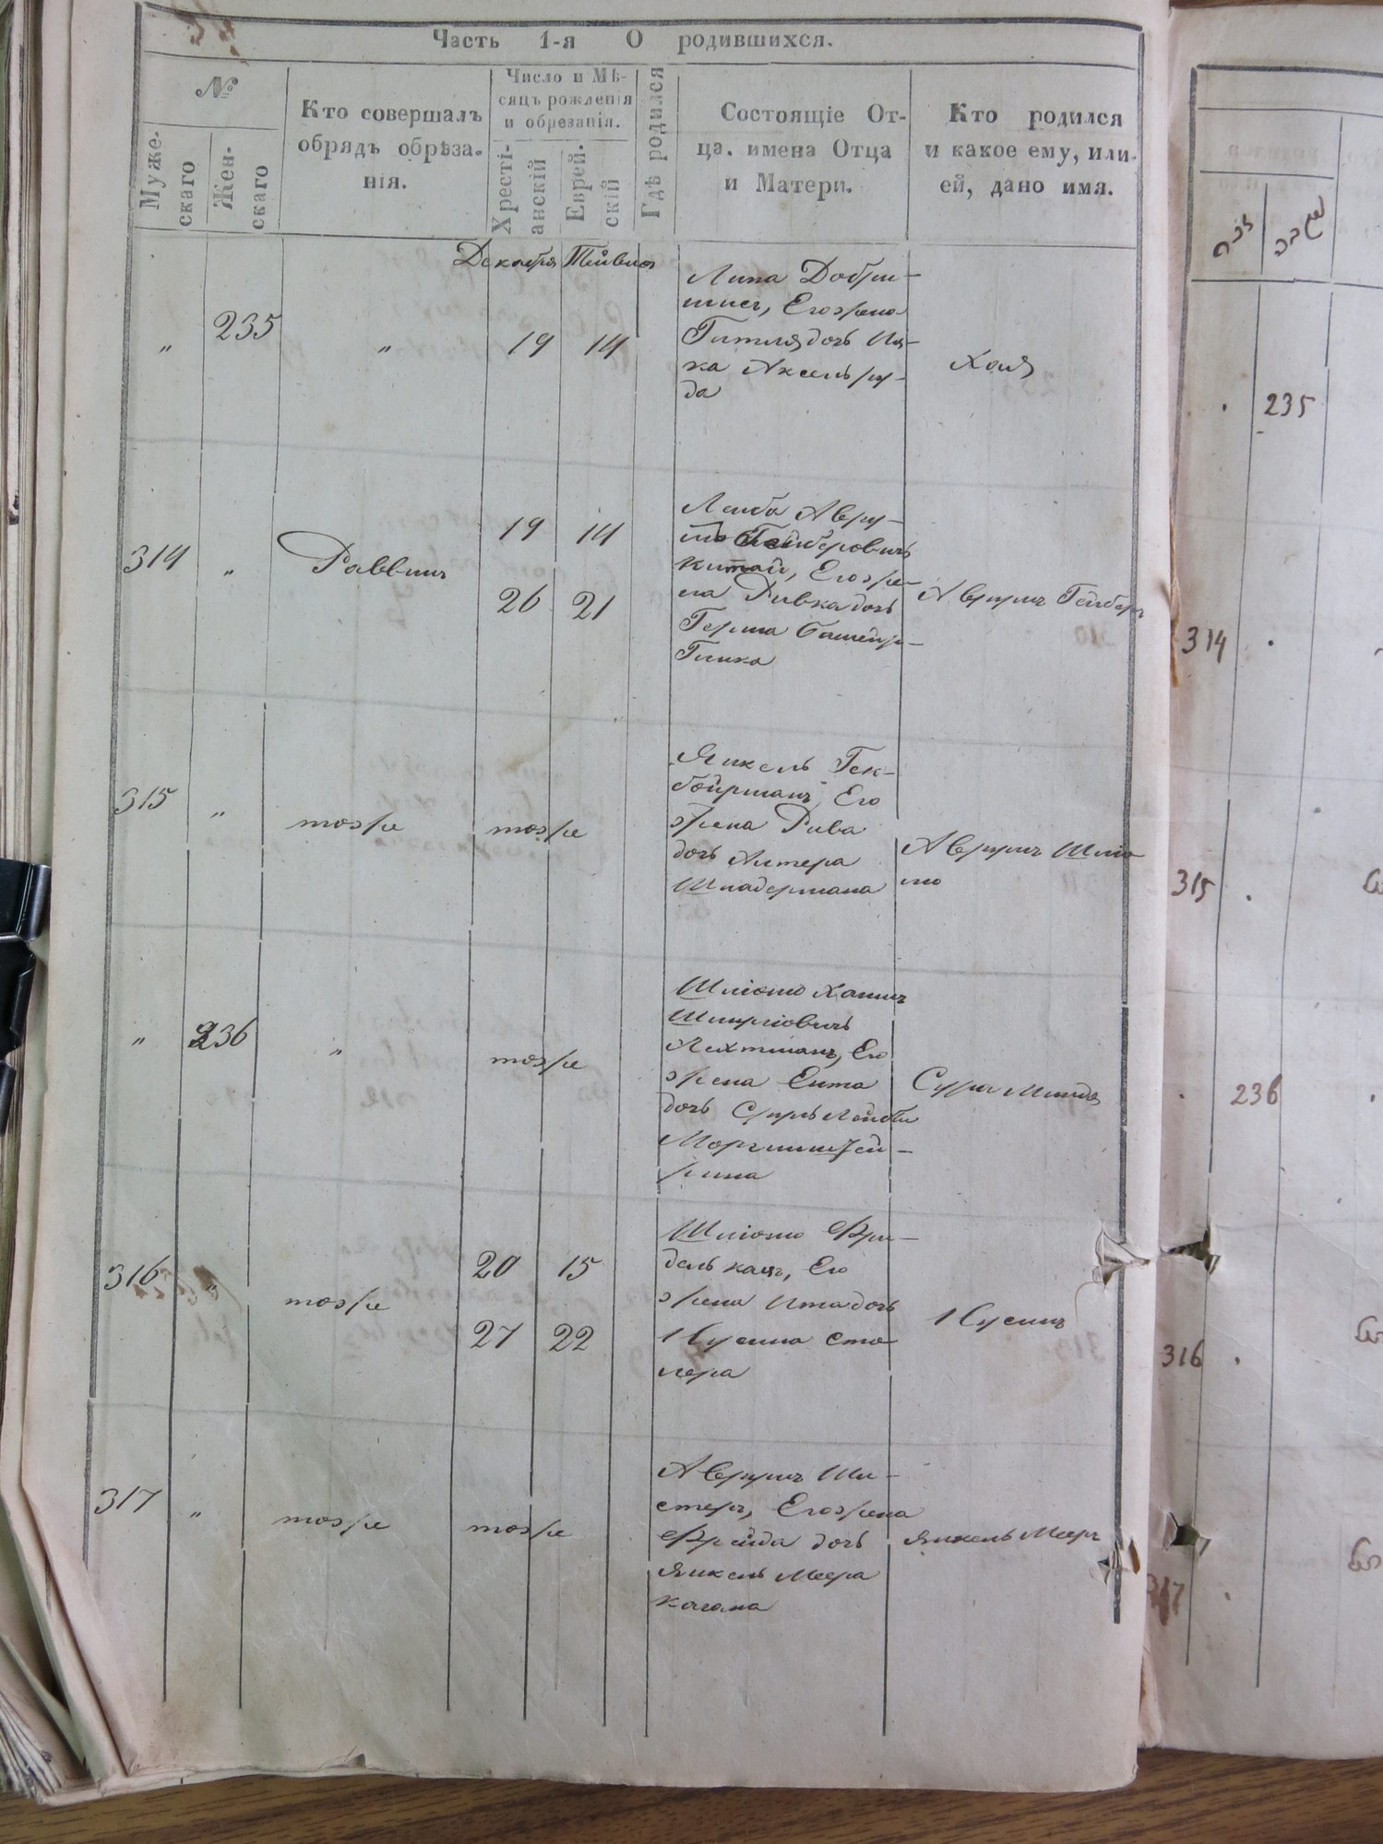 Часть 1-я О родившихся.
№
Муже-
скаго
Жен-
скаго
Кто совершалъ
обрядъ обрѣза-
нія.
Число и Мѣ-
сяцъ рожденія
и обрезанія.
Хресті-
анскій
Еврей-
скій
Гдѣ родился
Состоящіе От-
ца, имена Отца
и Матери.
Кто родился
и какое ему, или
ей, дано имя.
Декабря Тейвиса
„ 235 „ 19 14
Липа Добри-
шисъ, Его жена
Гитля дочь Иц-
ка Аксельру-
да
Хая
314 „ Раввинъ
19 14
26 21
Лейба Авру-
Китай, Его же-
на Ривка дочь
Герша
Аврумъ Гейберъ
315 „ тоже тоже
Янкель Гех-
бойрманъ, Его
жена Рива
дочь Алтера
Шнадермана
Аврумъ Шліо
мо
„ 236 „ тоже
Шліомо Хаимъ
Шмуліовичъ
Лехтманъ, Его
жена Ента
дочь Сруль Лейбы
Моргинштей-
рина
Сура Минда
316 „ тоже
20 15
27 22
Шліомо Фри-
дель кацъ, Его
жена Ита дочь
Нусина Сто
лера
Нусинъ
317 „ тоже тоже
Аврумъ Ши-
стеръ, Его жена
Фрейда дочь
Янкель Меера
Кагана
Янкель Мееръ
זכר
נקבה
235
314
315
236
316
317